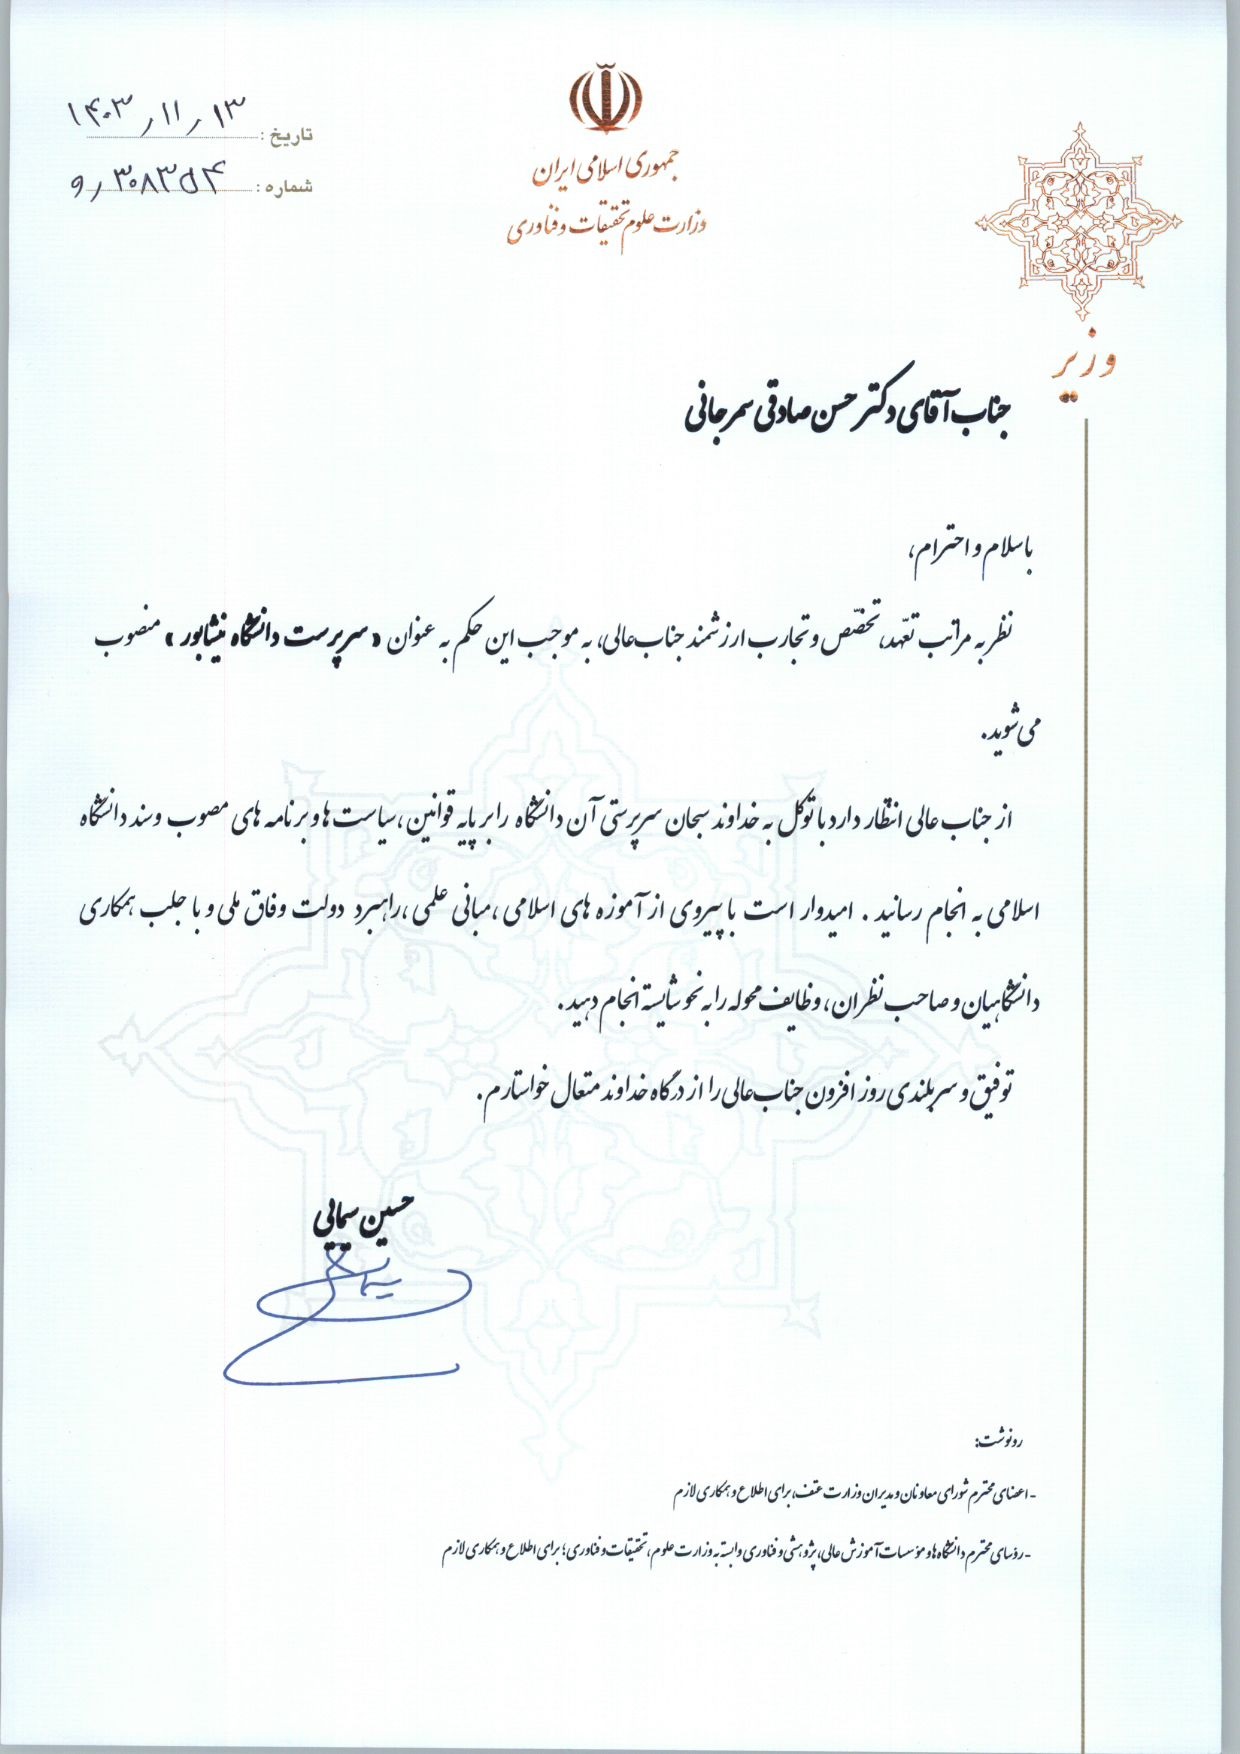 تاریخ: ۱۴۰۳/۱۱/۱۳
شماره: ۳۰۸۳۵۴/و
جمهوری اسلامی ایران
وزارت علوم تحقیقات و فناوری
وزیر
جناب آقای دکتر حسن صادقی سمرجانی
با سلام و احترام،
نظر به مراتب تعهّد، تخصّص و تجارب ارزشمند جناب‌عالی، به موجب این حکم به عنوان «سرپرست دانشگاه نیشابور» منصوب
می‌شوید.
از جناب عالی انتظار دارد با توکل به خداوند سبحان سرپرستی آن دانشگاه را بر پایه قوانین، سیاست ها و برنامه های مصوب و سند دانشگاه
اسلامی به انجام رسانید. امیدوار است با پیروی از آموزه های اسلامی، مبانی علمی، راهبرد دولت وفاق ملی و با جلب همکاری
دانشگاهیان و صاحب نظران، وظایف محوله را به نحو شایسته انجام دهید.
توفیق و سربلندی روز افزون جناب‌عالی را از درگاه خداوند متعال خواستارم.
حسین سیمایی
رونوشت:
- اعضای محترم شورای معاونان و مدیران وزارت عتف، برای اطلاع و همکاری لازم
- رؤسای محترم دانشگاه ها و مؤسسات آموزش عالی، پژوهشی و فناوری وابسته به وزارت علوم، تحقیقات و فناوری؛ برای اطلاع و همکاری لازم